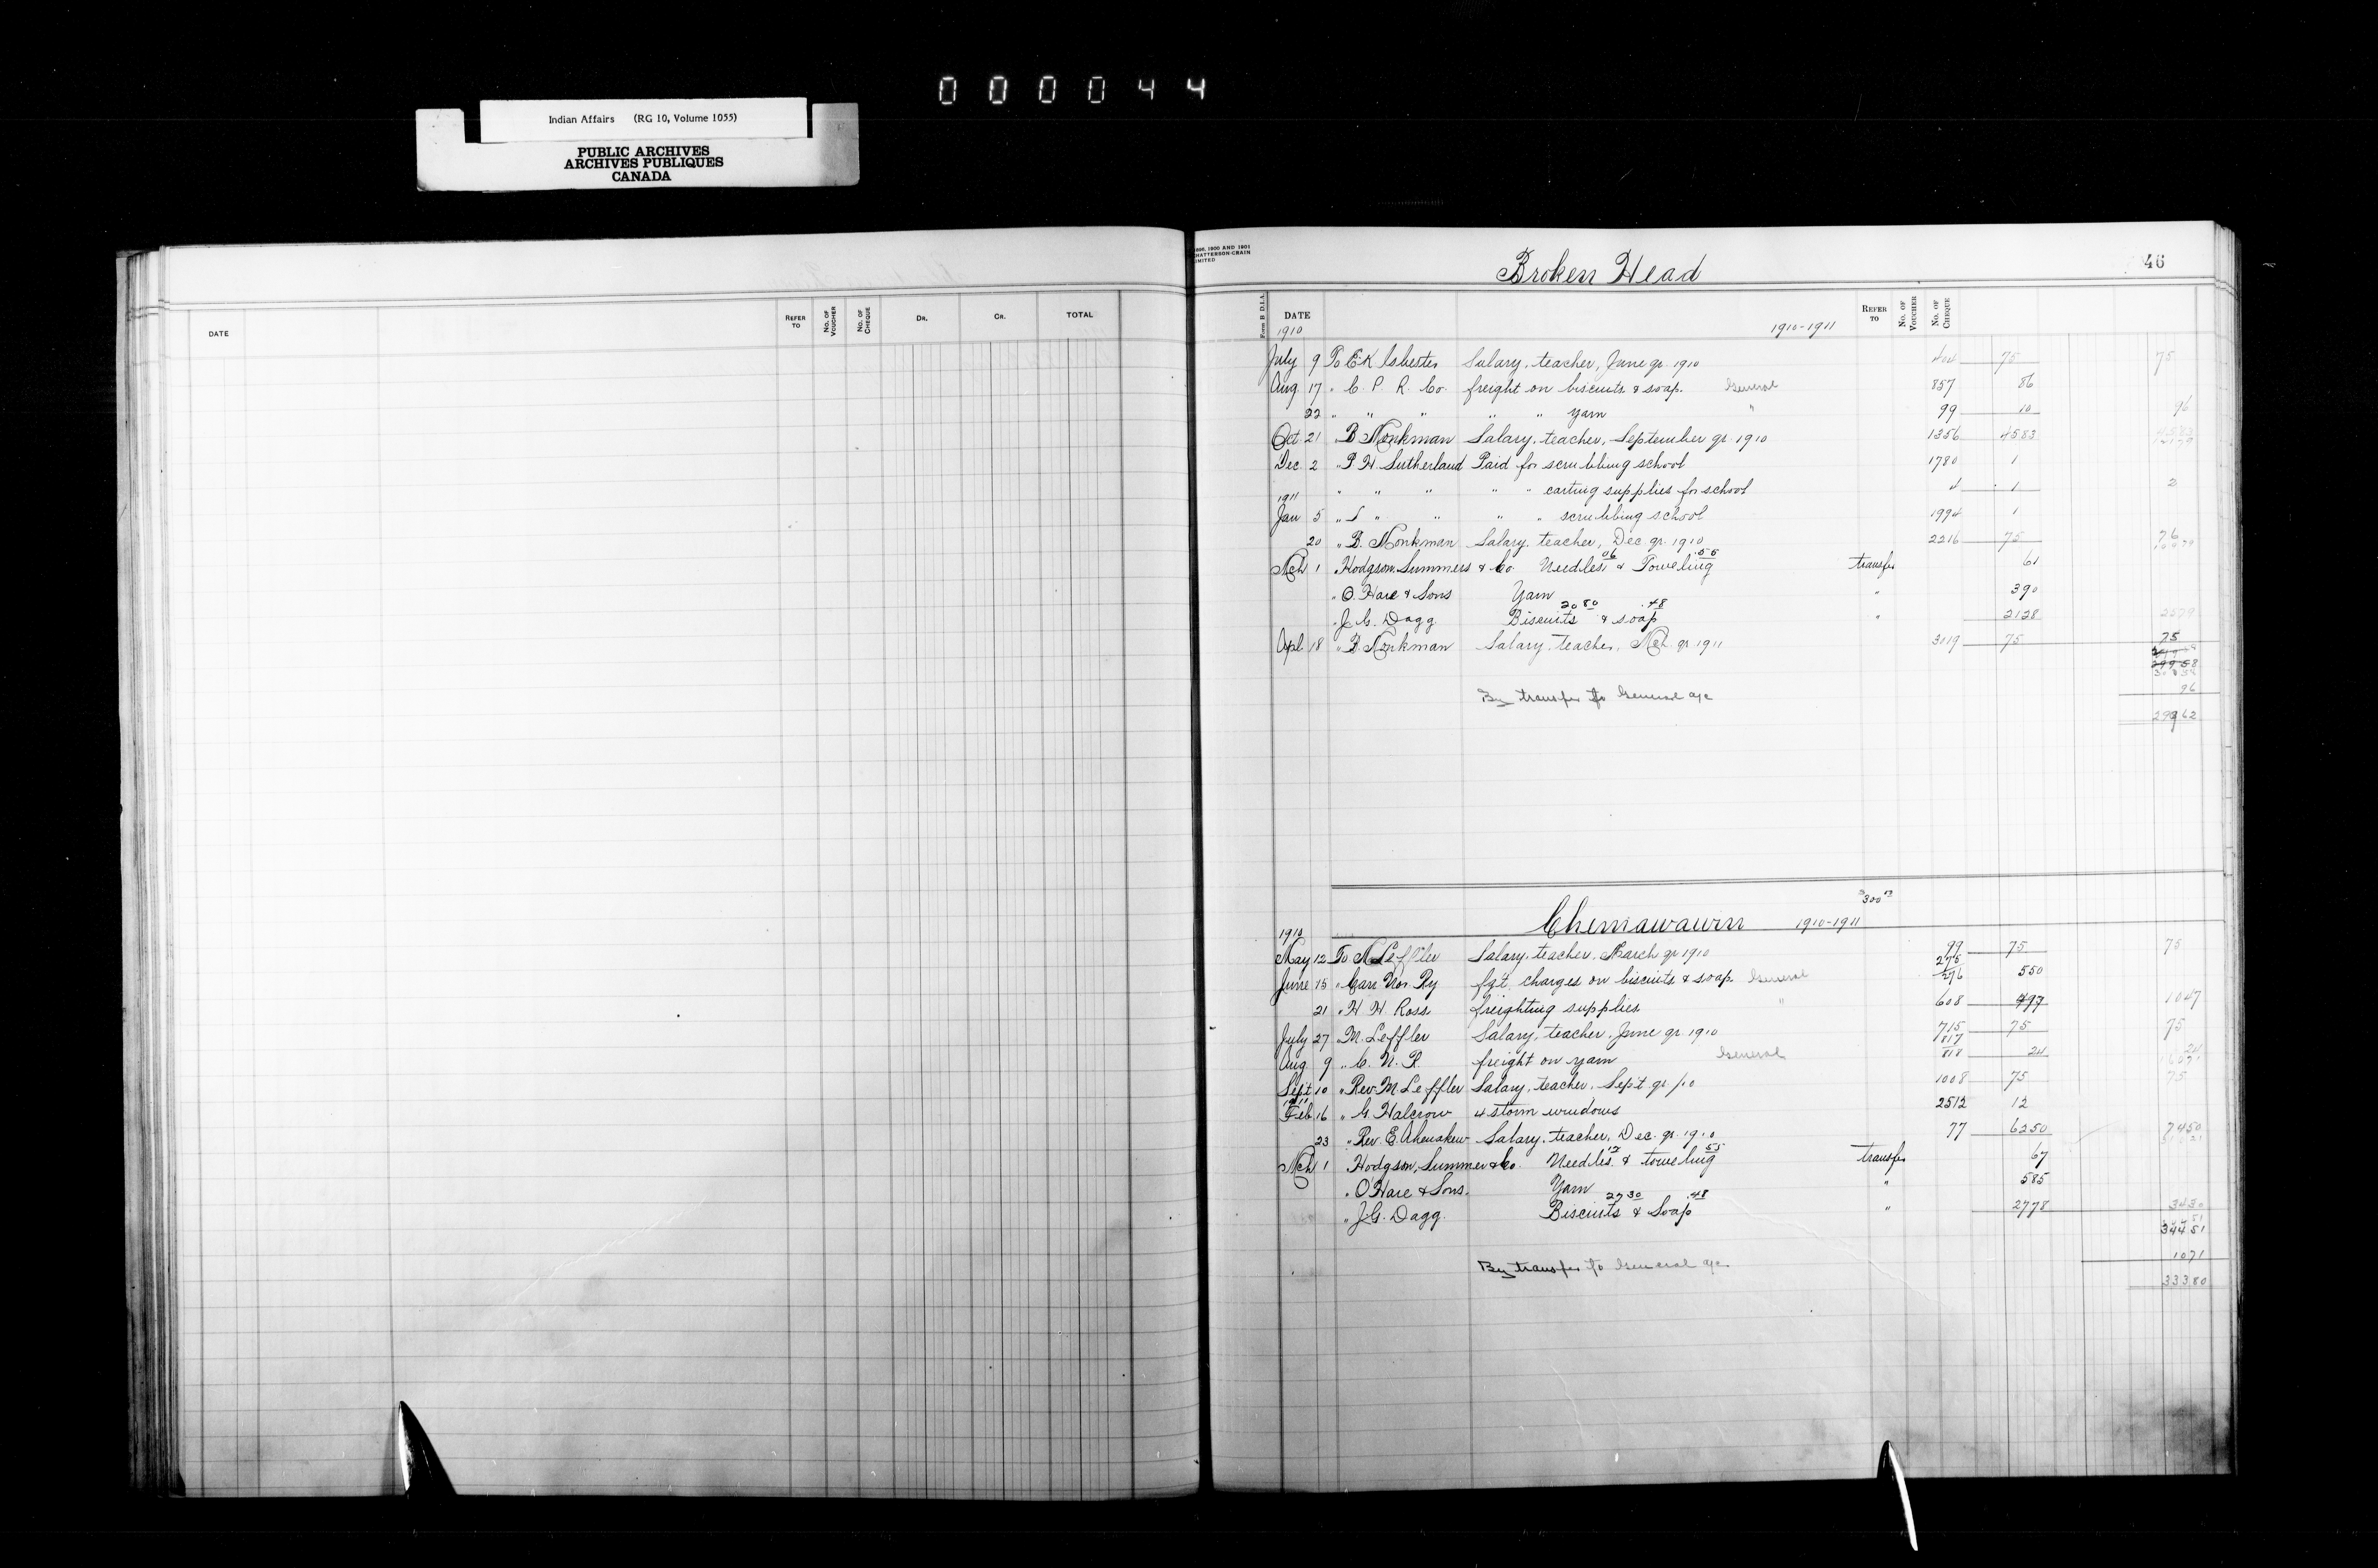 000044
Indian Affairs (RG 10, Volume 1055)
PUBLIC ARCHIVES
ARCHIVES PUBLIQUES
CANADA
DATE REFER TO No. OF VOUCHER No. OF CHEQUE DR. CR. TOTAL
1896, 1900 AND 1901
CHATTERSON-CRAIN
LIMITED
Broken Head 46
Form B D.I.A. DATE REFER TO No. OF VOUCHER No. OF CHEQUE
1910 1910-1911
July 9 To E K Isbester Salary, teacher, June qr. 1910 404 75 75
Aug. 17 " C. P. R. Co. freight on biscuits & soap. General 857 86
22 " " " " " yarn " 99 10 96
Oct 21 " B Monkman Salary, teacher, September qr. 1910 1356 4583
Dec. 2 " P H. Sutherland Paid for scrubbing school 1780 1
" " " " " carting supplies for school 4 1 2
1911
Jan 5 " " " " " scrubbing school 1994 1
20 " B. Monkman Salary, teacher, Dec qr. 1910 2216 75 76
06 .55
Mch 1 Hodgson, Summers & Co Needles & Toweling transfer 61
" O. Hare & Sons Yarn " 390
20 80 .48
" J. G. Dagg. Biscuits & soap " 2128 2579
Apl. 18 " B. Monkman Salary, teacher, Mch. qr 1911 3119 75 75
29958
By transfer to General a/c 96
29962
$300
Chemawawin 1910-1911
1910
May 12 To M Leffler Salary, teacher, March qr 1910 99 75 75
275
June 15 " Can Nor. Ry fgt. charges on biscuits & soap General 276 550
21 " H H Ross. freighting supplies " 608 497 1047
July 27 " M. Leffler Salary, teacher, June qr. 1910 715 75 75
817
Aug 9 " C. N. R. freight on yarn General 818 24 24
Sept 10 " Rev. M. Leffler Salary, teacher, Sept. qr. /10 1008 75 75
1911
Feb. 16 " G. Halcrow 4 storm windows 2512 12
23 " Rev. E. Ahenakew Salary, teacher, Dec. qr. 1910 77 6250 7450
.12 55
Mch 1 Hodgson, Summer & Co. Needles & toweling transfer 67
" O'Hare & Sons. Yarn " 585
27 30 .48
" J.G. Dagg. Biscuits & Soap " 2778 3430
34451
By transfer to General a/c 1071
33380